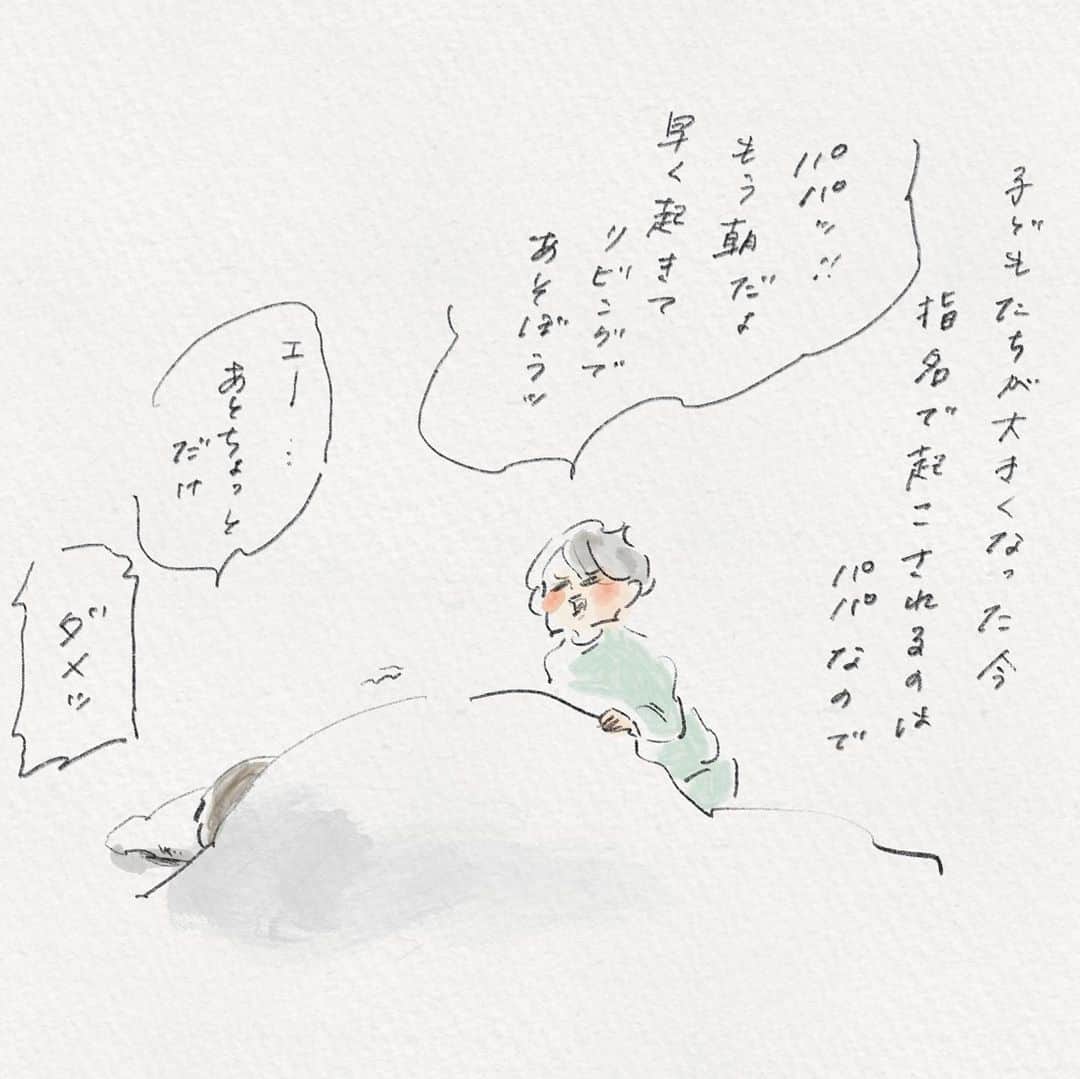 子どもたちが大きくなった今
指名で起こされるのは
パパなので
パパッ!!
もう朝だよ
早く起きて
リビングで
あそぼうッ
エー…
あとちょっと
だけ
ダメッ